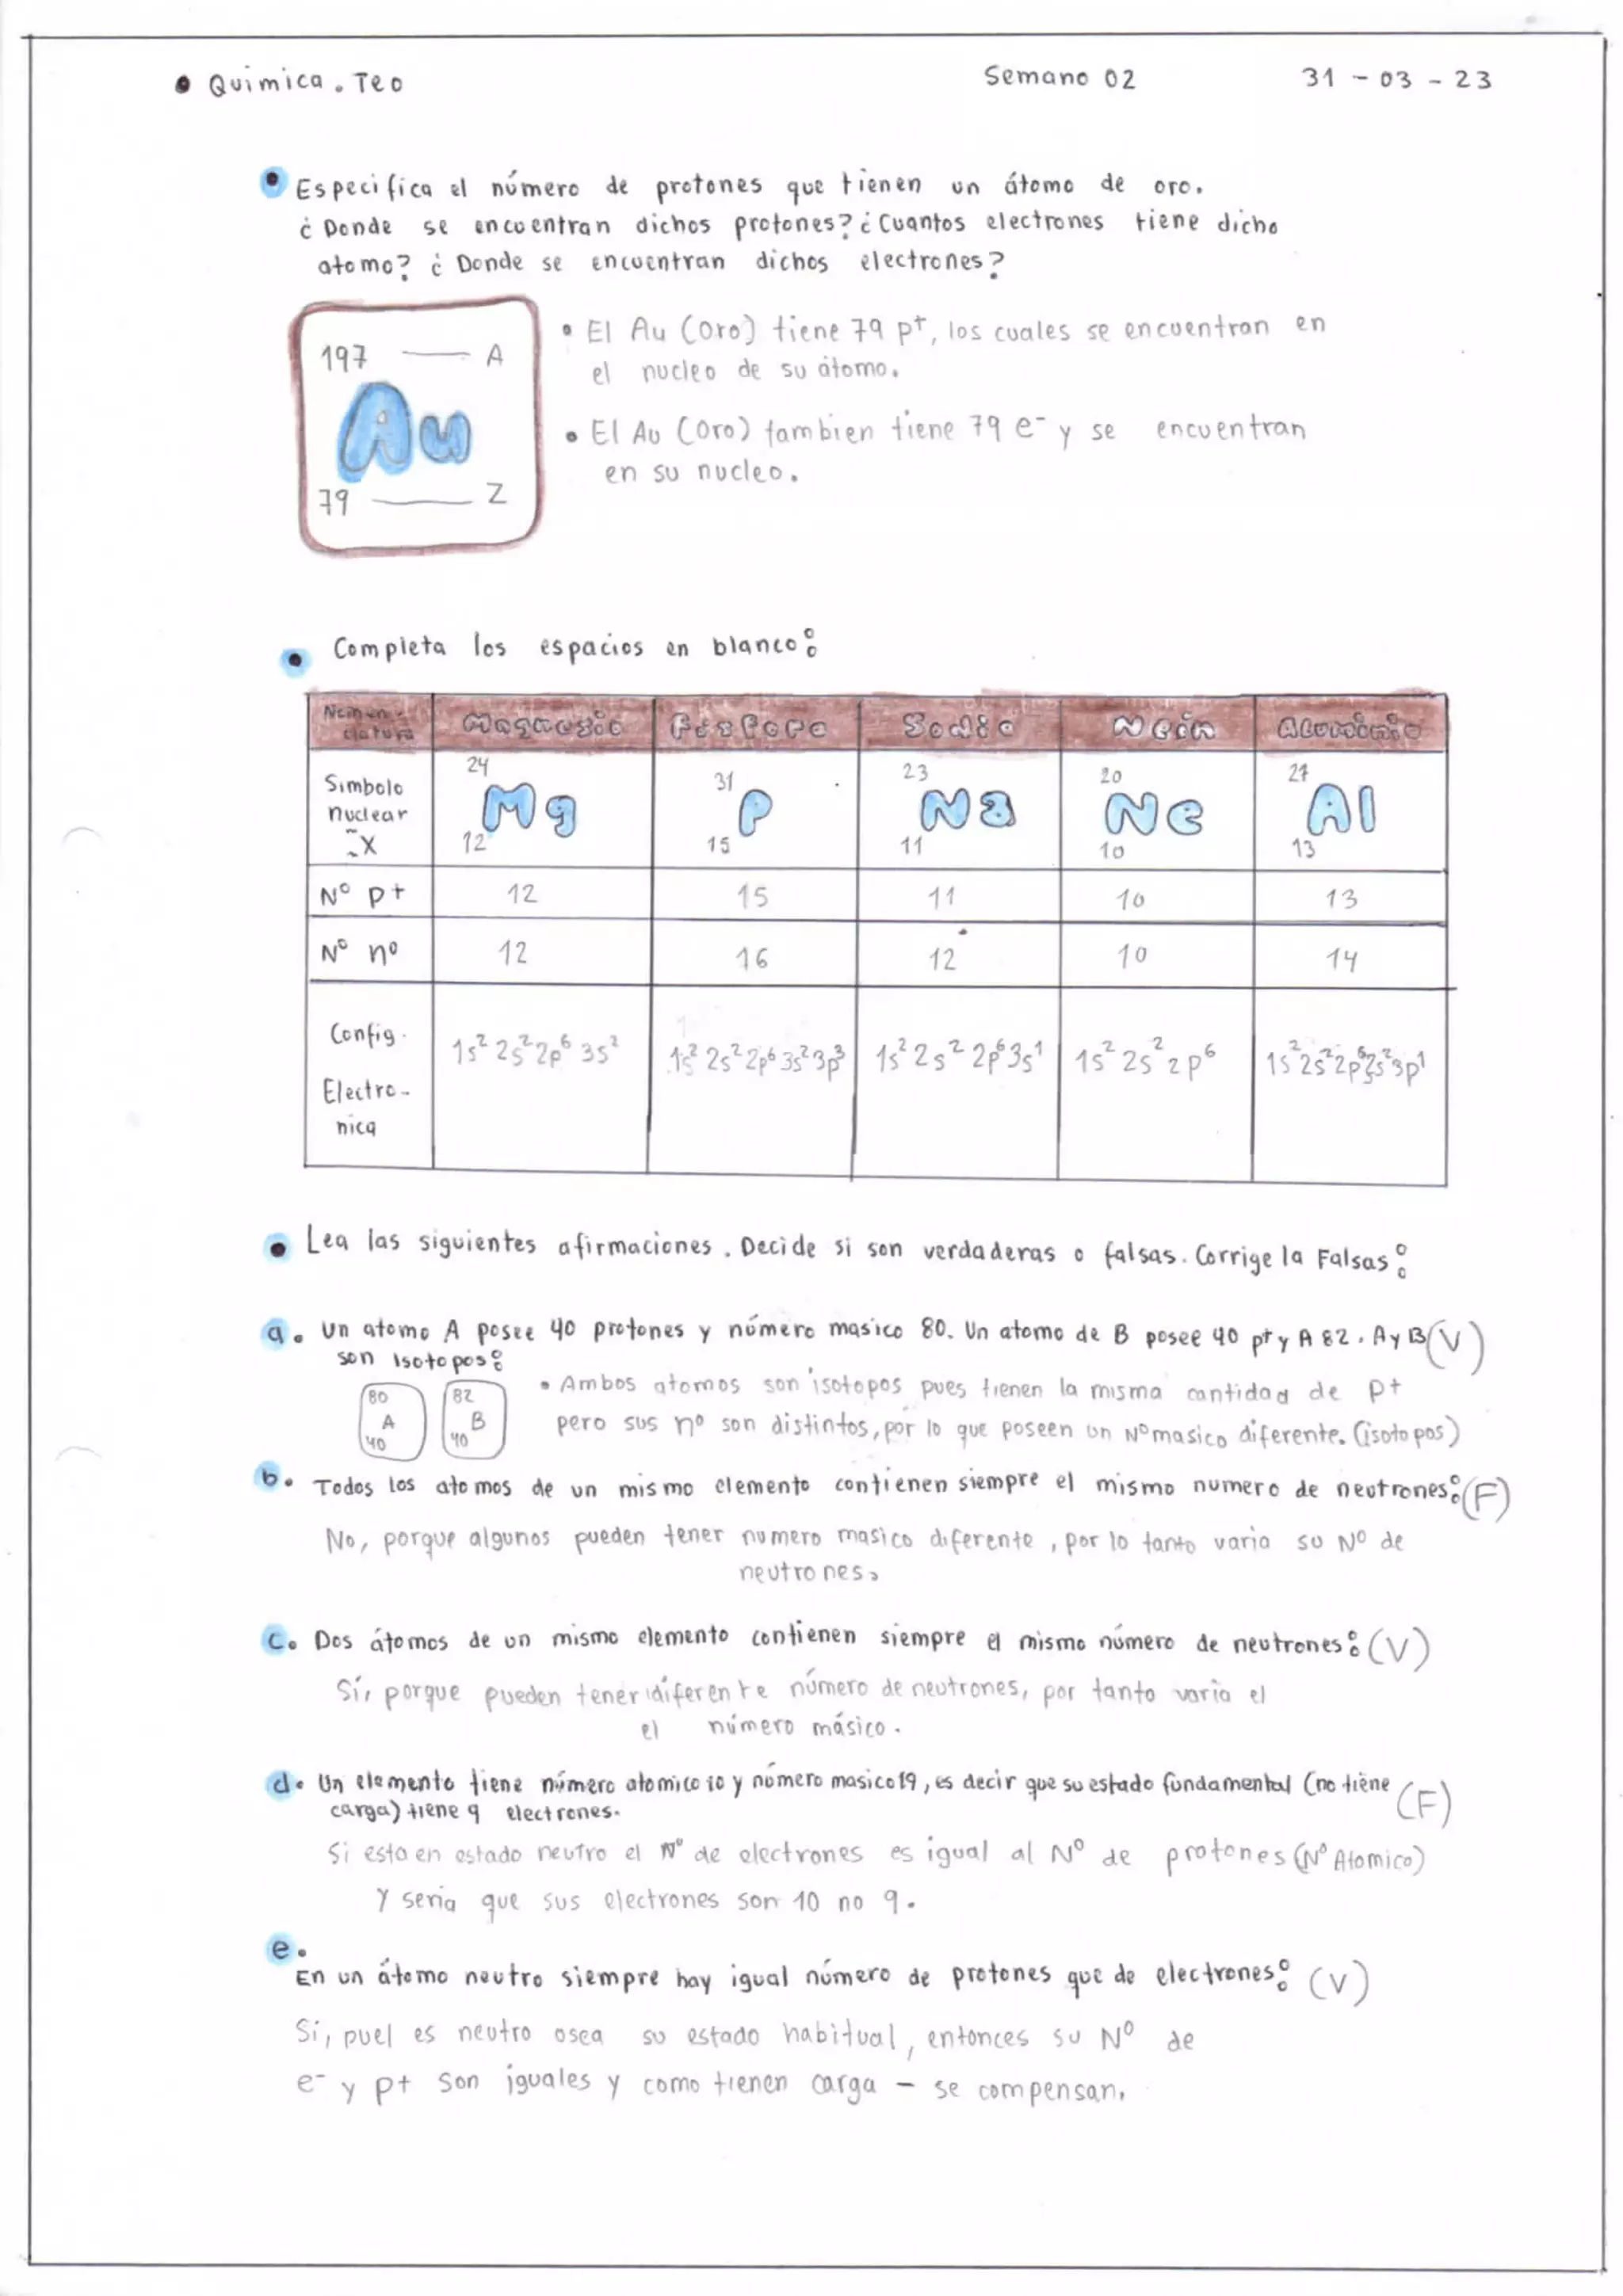 • Quimica. Teo Semano 02 31 - 03 - 23
• Especifica el número de protones que tienen un átomo de oro.
¿Donde se encuentran dichos protones? ¿Cuantos electrones tiene dicho
atomo? ¿Donde se encuentran dichos electrones?
197 — A
Au
79 — Z
• El Au (Oro) tiene 79 p+, los cuales se encuentran en
el nucleo de su átomo.
• El Au (Oro) tambien tiene 79 e- y se encuentran
en su nucleo.
• Completa los espacios en blanco:
Nomen-clatura Magnesio Fósforo Sodio Neón Aluminio
Simbolo nuclear ~X 24 Mg 12 31 P 15 23 Na 11 20 Ne 10 27 Al 13
Nº p+ 12 15 11 10 13
Nº nº 12 16 12 10 14
Config. Electro-nica 1s² 2s² 2p⁶ 3s² 1s² 2s² 2p⁶ 3s² 3p³ 1s² 2s² 2p⁶ 3s¹ 1s² 2s² 2p⁶ 1s² 2s² 2p⁶ 3s² 3p¹
• Lea las siguientes afirmaciones. Decide si son verdaderas o falsas. Corrige la Falsas:
a. Un atomo A posee 40 protones y número masico 80. Un atomo de B posee 40 p+ y A 82. A y B (V)
son Isotopos:
80 A 40 82 B 40
• Ambos atomos son isotopos pues tienen la misma cantidad de p+
pero sus nº son distintos, por lo que poseen un Nº masico diferente. (isotopos)
b. Todos los atomos de un mismo elemento contienen siempre el mismo numero de neutrones: (F)
No, porque algunos pueden tener numero masico diferente, por lo tanto varia su Nº de
neutrones.
c. Dos átomos de un mismo elemento contienen siempre el mismo número de neutrones: (V)
Sí, porque pueden tener diferente número de neutrones, por tanto varia el
el número másico.
d. Un elemento tiene número atomico 10 y número masico 19, es decir que su estado fundamental (no tiène (F)
carga) tiene 9 electrones.
Si esta en estado neutro el Nº de electrones es igual al Nº de protones (Nº Atomico)
Y seria que sus electrones son 10 no 9.
e.
En un átomo neutro siempre hay igual número de protones que de electrones: (V)
Sí, puel es neutro osea su estado habitual, entonces su Nº de
e- y p+ son iguales y como tienen carga - se compensan.